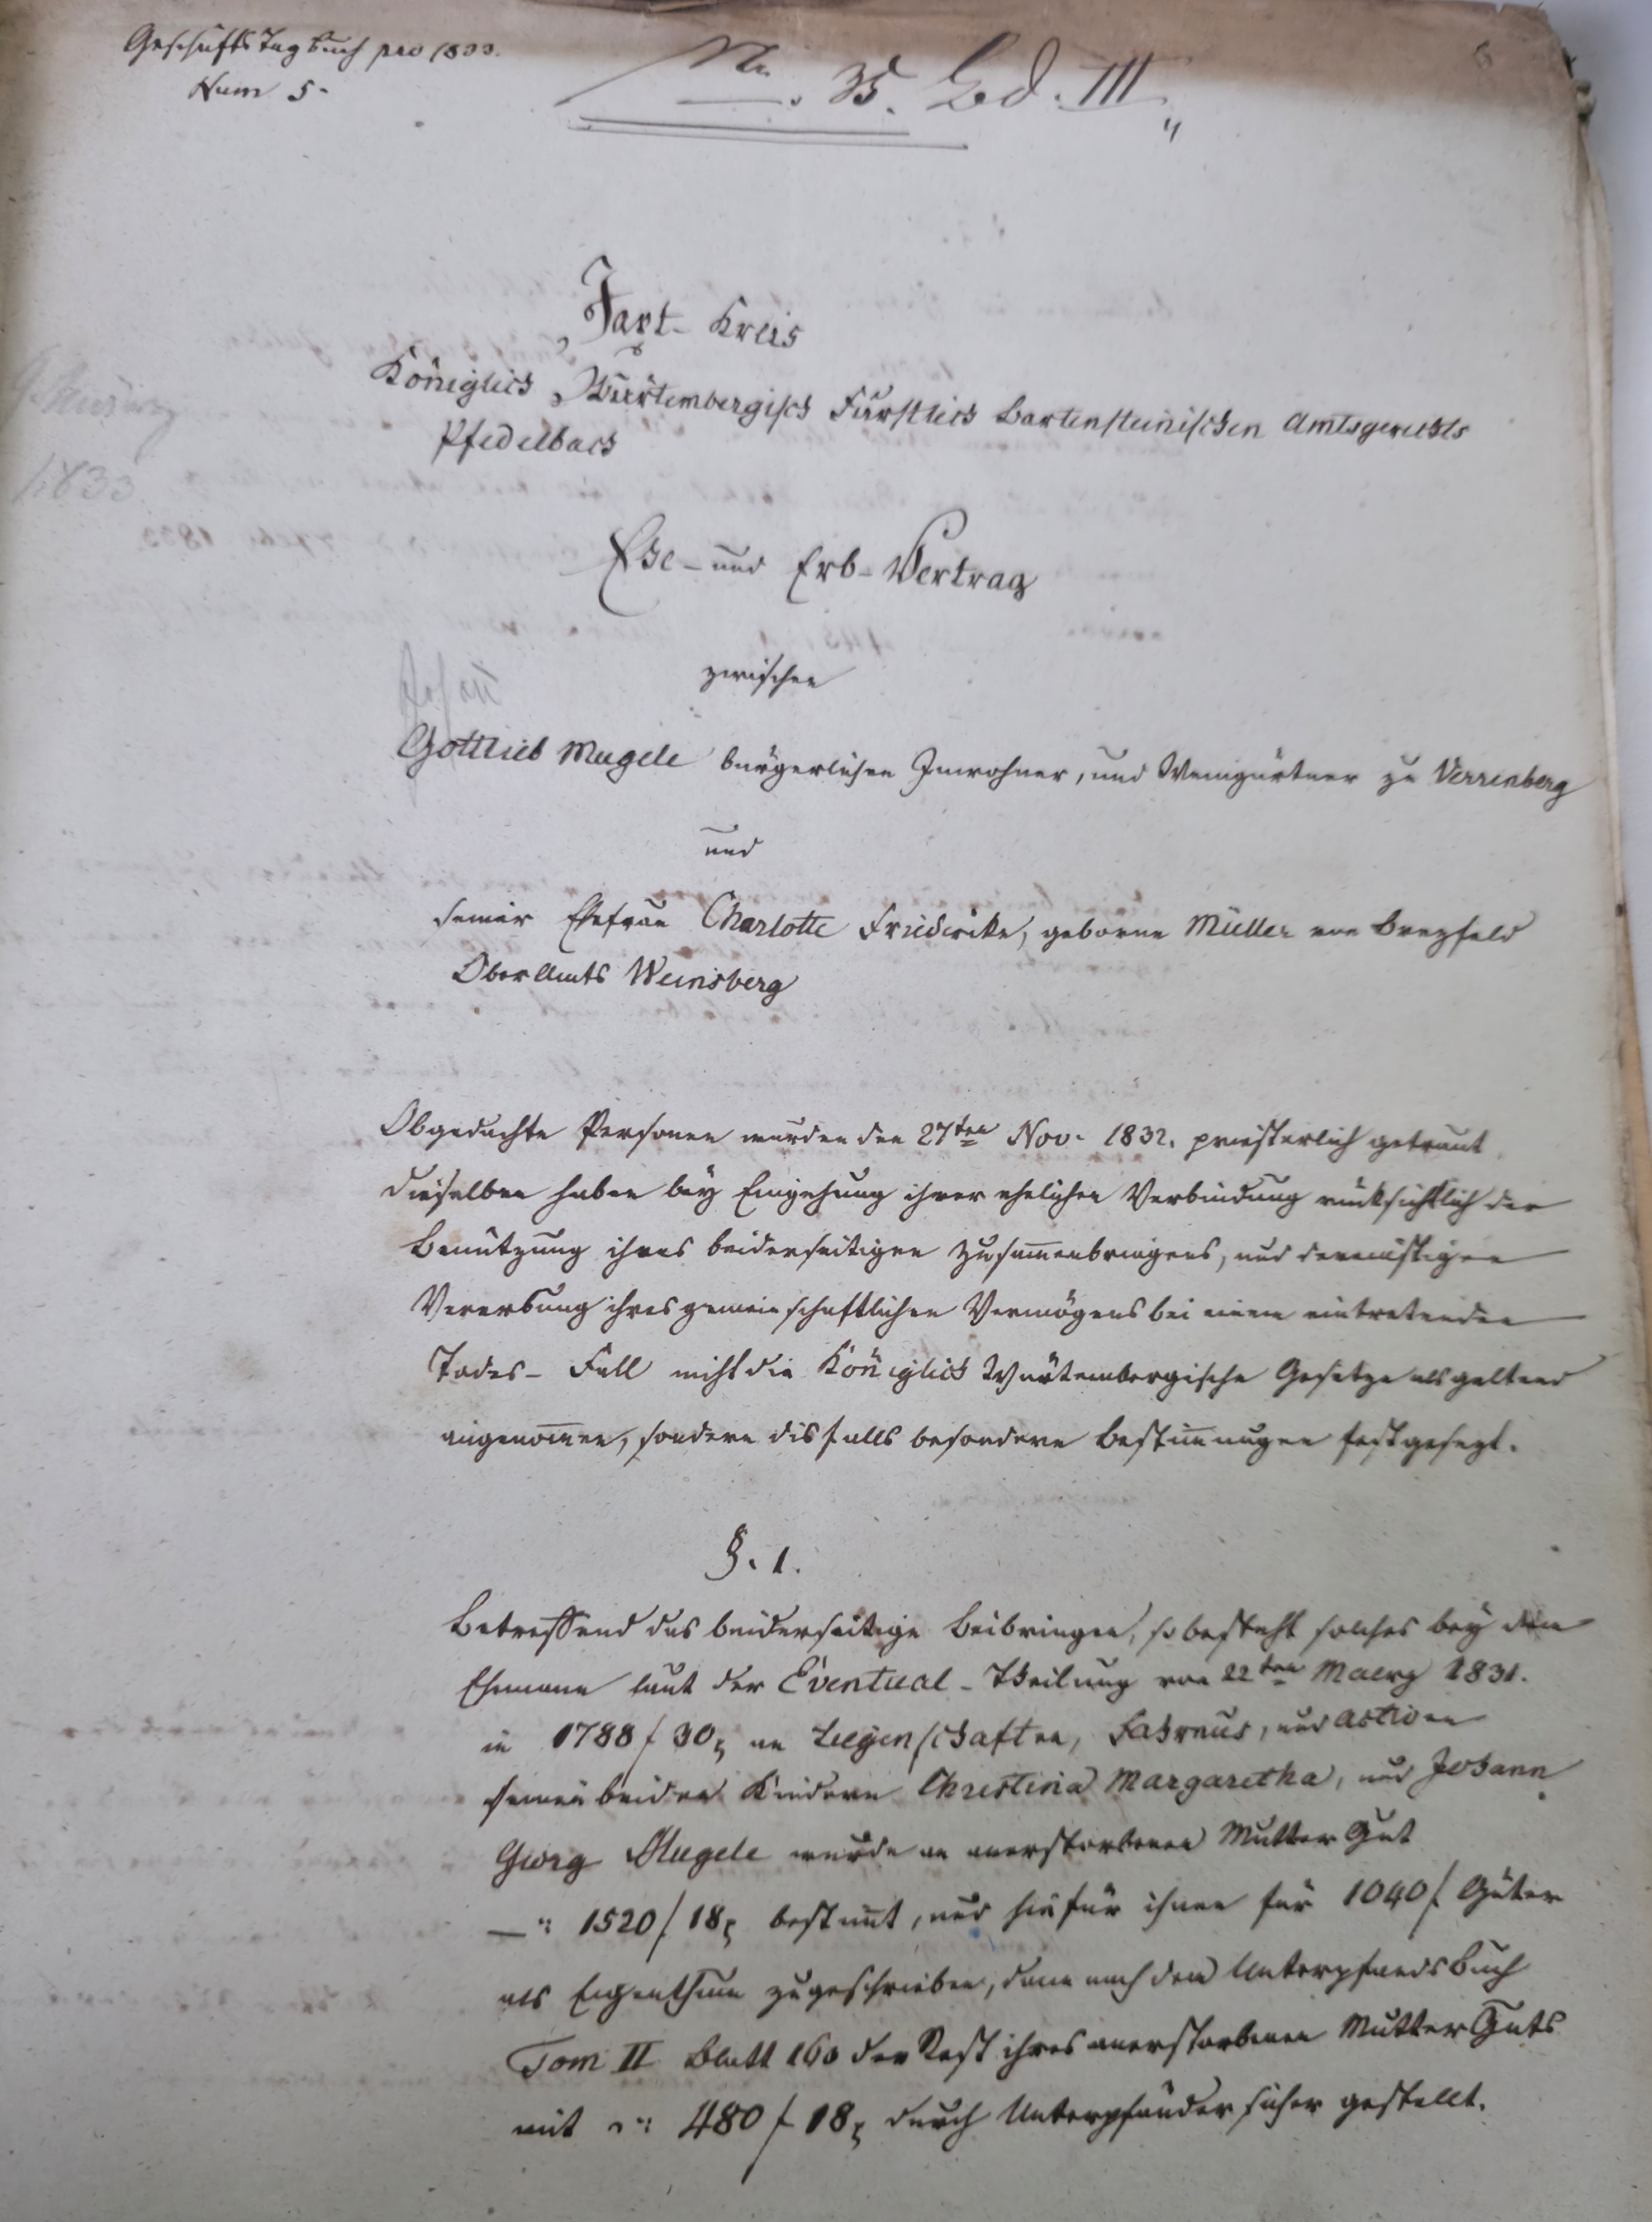 Geschäfts Tagbuch pro 1833.
Num 5.
Nr. 35. Bd. III
Jaxt-Kreis
1833.
Königlich Würtembergisch Fürstlich Bartensteinischen Amtsgerichts
Pfedelbach
Ehe- und Erb-Vertrag
zwischen
Gottlieb Mugele bürgerlichen Innwohner, und Weingärtner zu Verrenberg
und
seiner Ehefrau Charlotte Friederike, geborne Müller von Brezfeld
OberAmts Weinsberg
Obgedachte Personen wurden den 27ten Nov. 1832. priesterlich getraut
dieselben haben bey Eingehung ihrer ehelichen Verbindung rücksichtlich der
Benutzung ihres beiderseitigen Zusam̅enbringens, und dereinstigen
Vererbung ihres gemeinschaftlichen Vermögens bei einem eintretenden
Todes-Fall nicht die Königlich Würtembergische Gesetze als geltend
angenom̅en, sondern disfalls besondere Bestim̅ungen festgesezt.
§. 1.
Betreffend das beiderseitige Beibringen, so besteht solches bey dem
Ehemann laut der Eventual-Theilung von 22ten Maerz 1831.
in 1788 f 30 x an Liegenschaften, Fahrnus, und Activen
seinen beiden Kindern Christina Margaretha, und Johann
Georg Mugele wurde an anerstorbenen Mutter Gut
—": 1520 f 18 x bestim̅t, und hiefür ihnen für 1040 f Güter
als Eigenthum zugeschrieben, dann nach dem Unterpfands Buch
Tom II Blatt 160 der Rest ihres anerstorbenen Mutter Guts
mit —": 480 f 18 x durch Unterpfänder sicher gestellt.